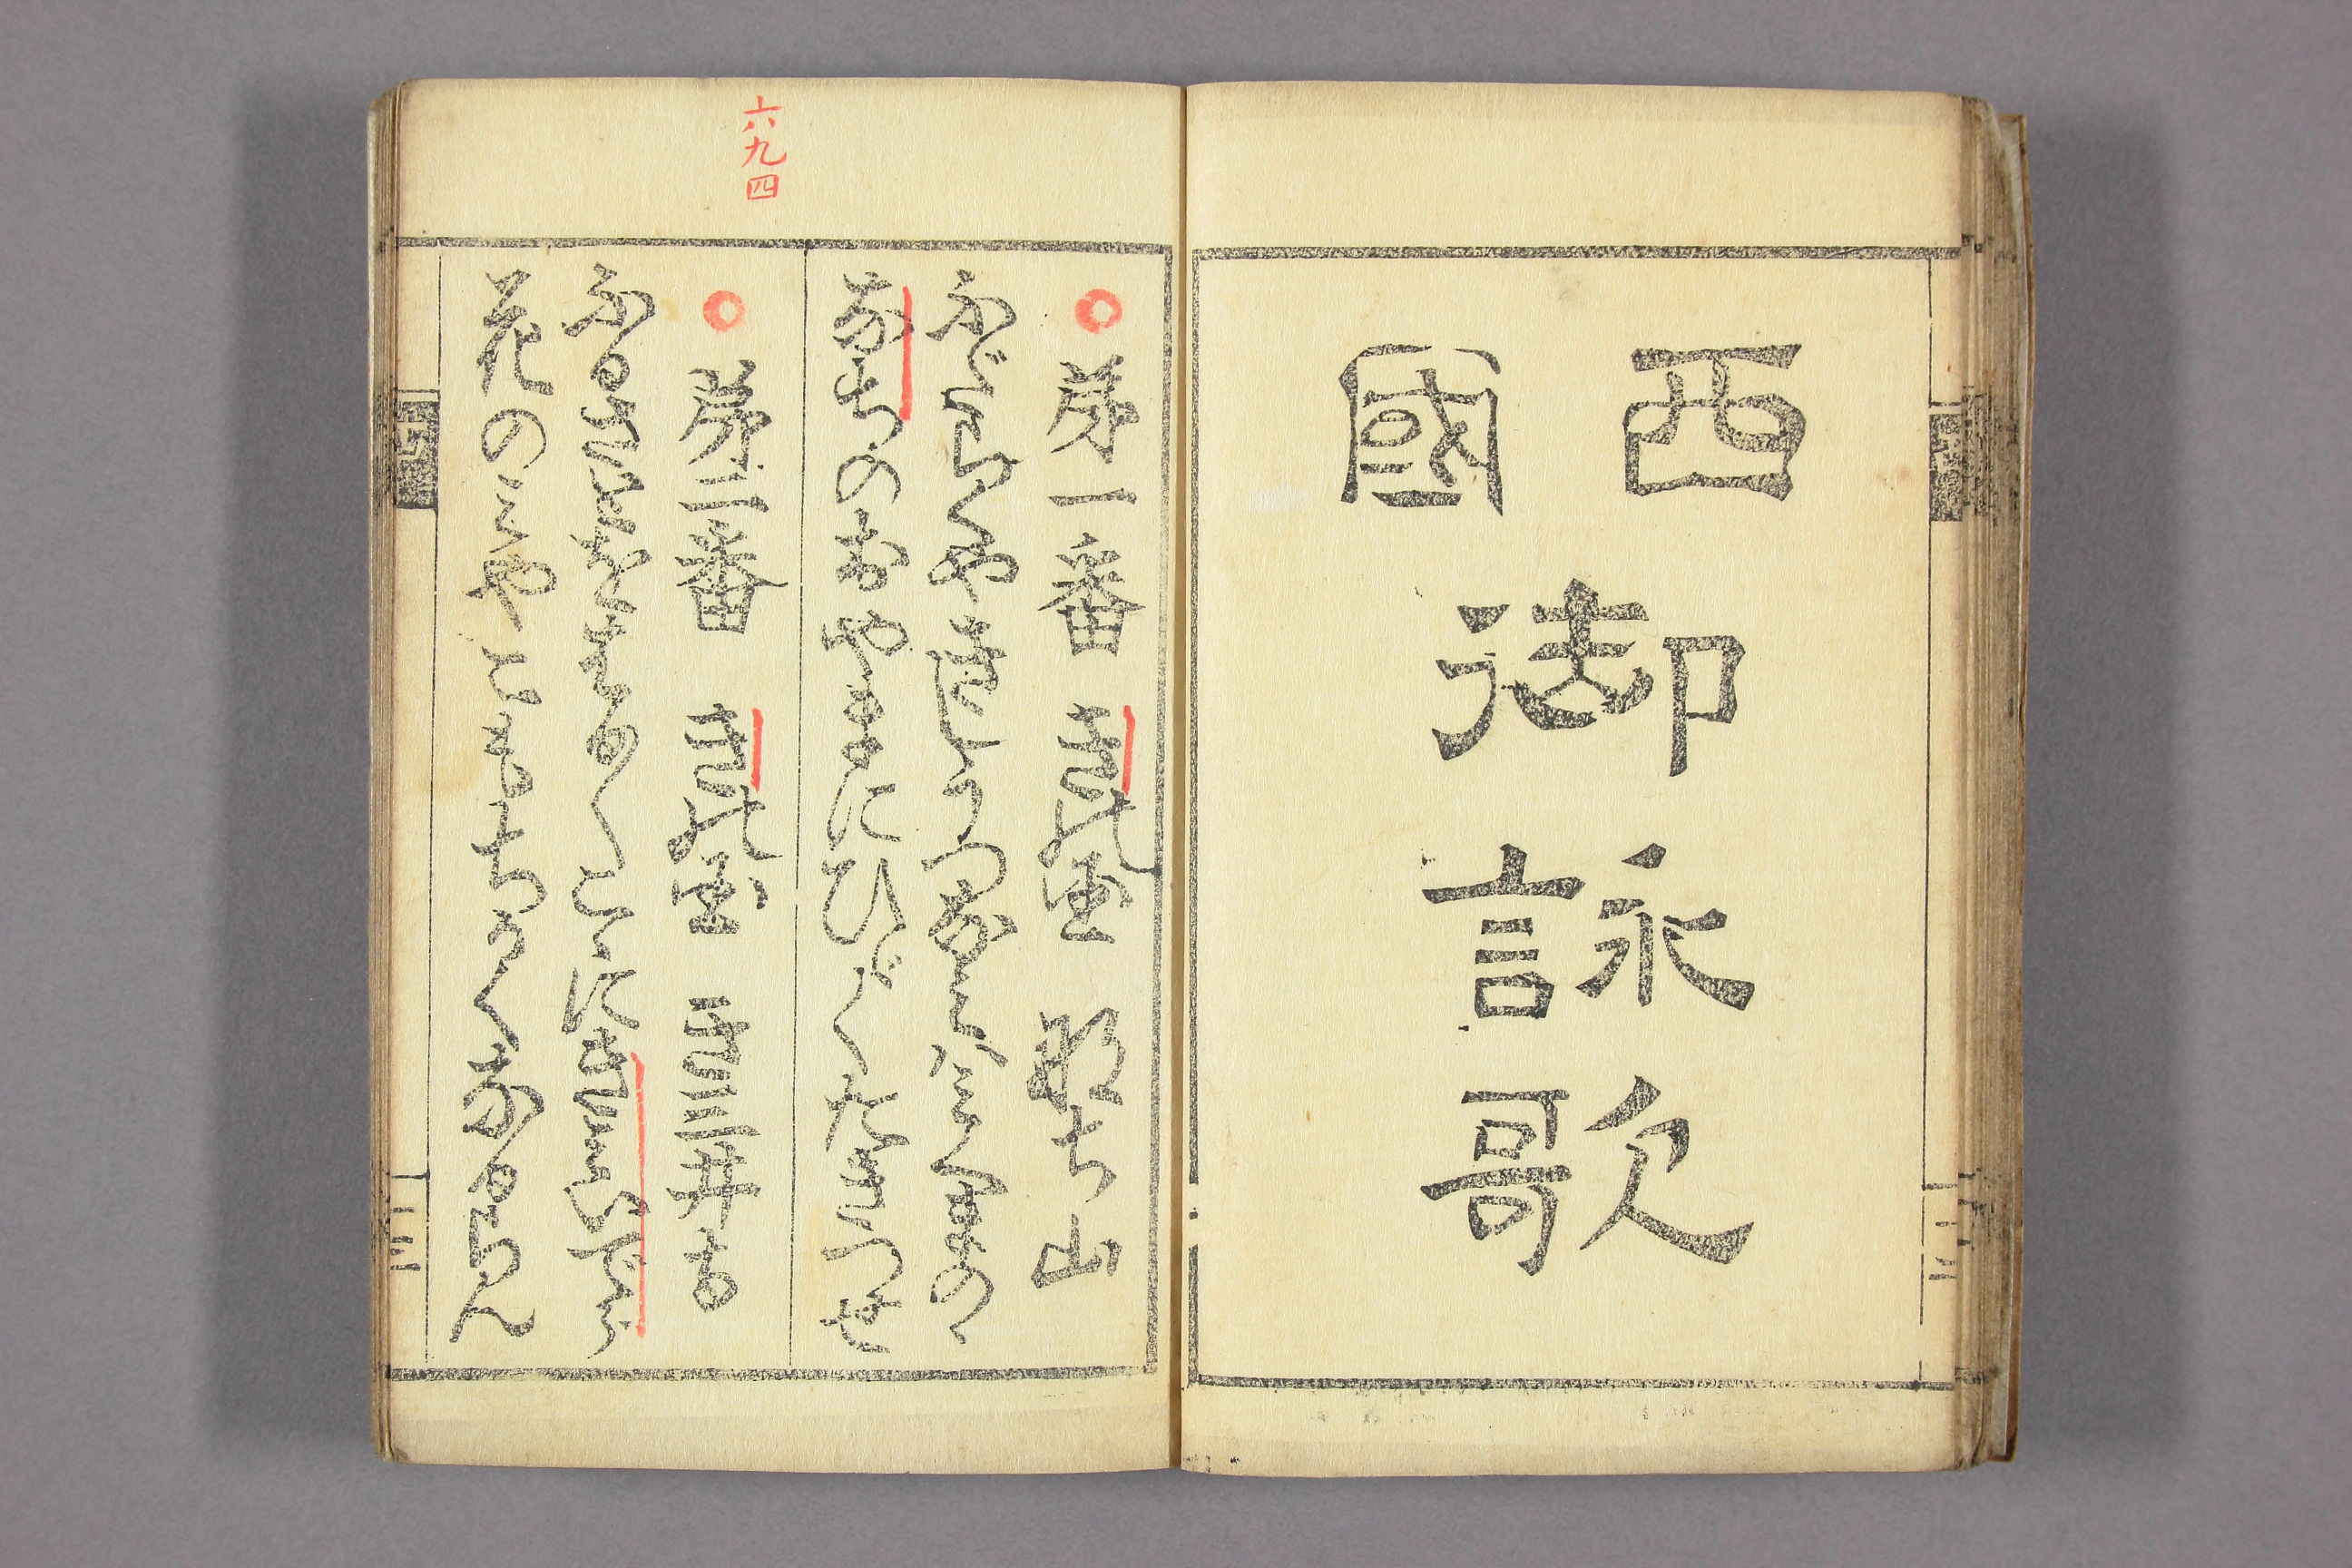 西國
御
詠
歌
第一番 きの国 那ち山
ふだらくやきしうつなみはみくまのゝ
なちのおやまにひゞくたきつせ
六九四
第二番 きの国 きみ三井寺
ふるさとをはる〴〵こゝにきみゐでら
花のみやこもちかくなるらん